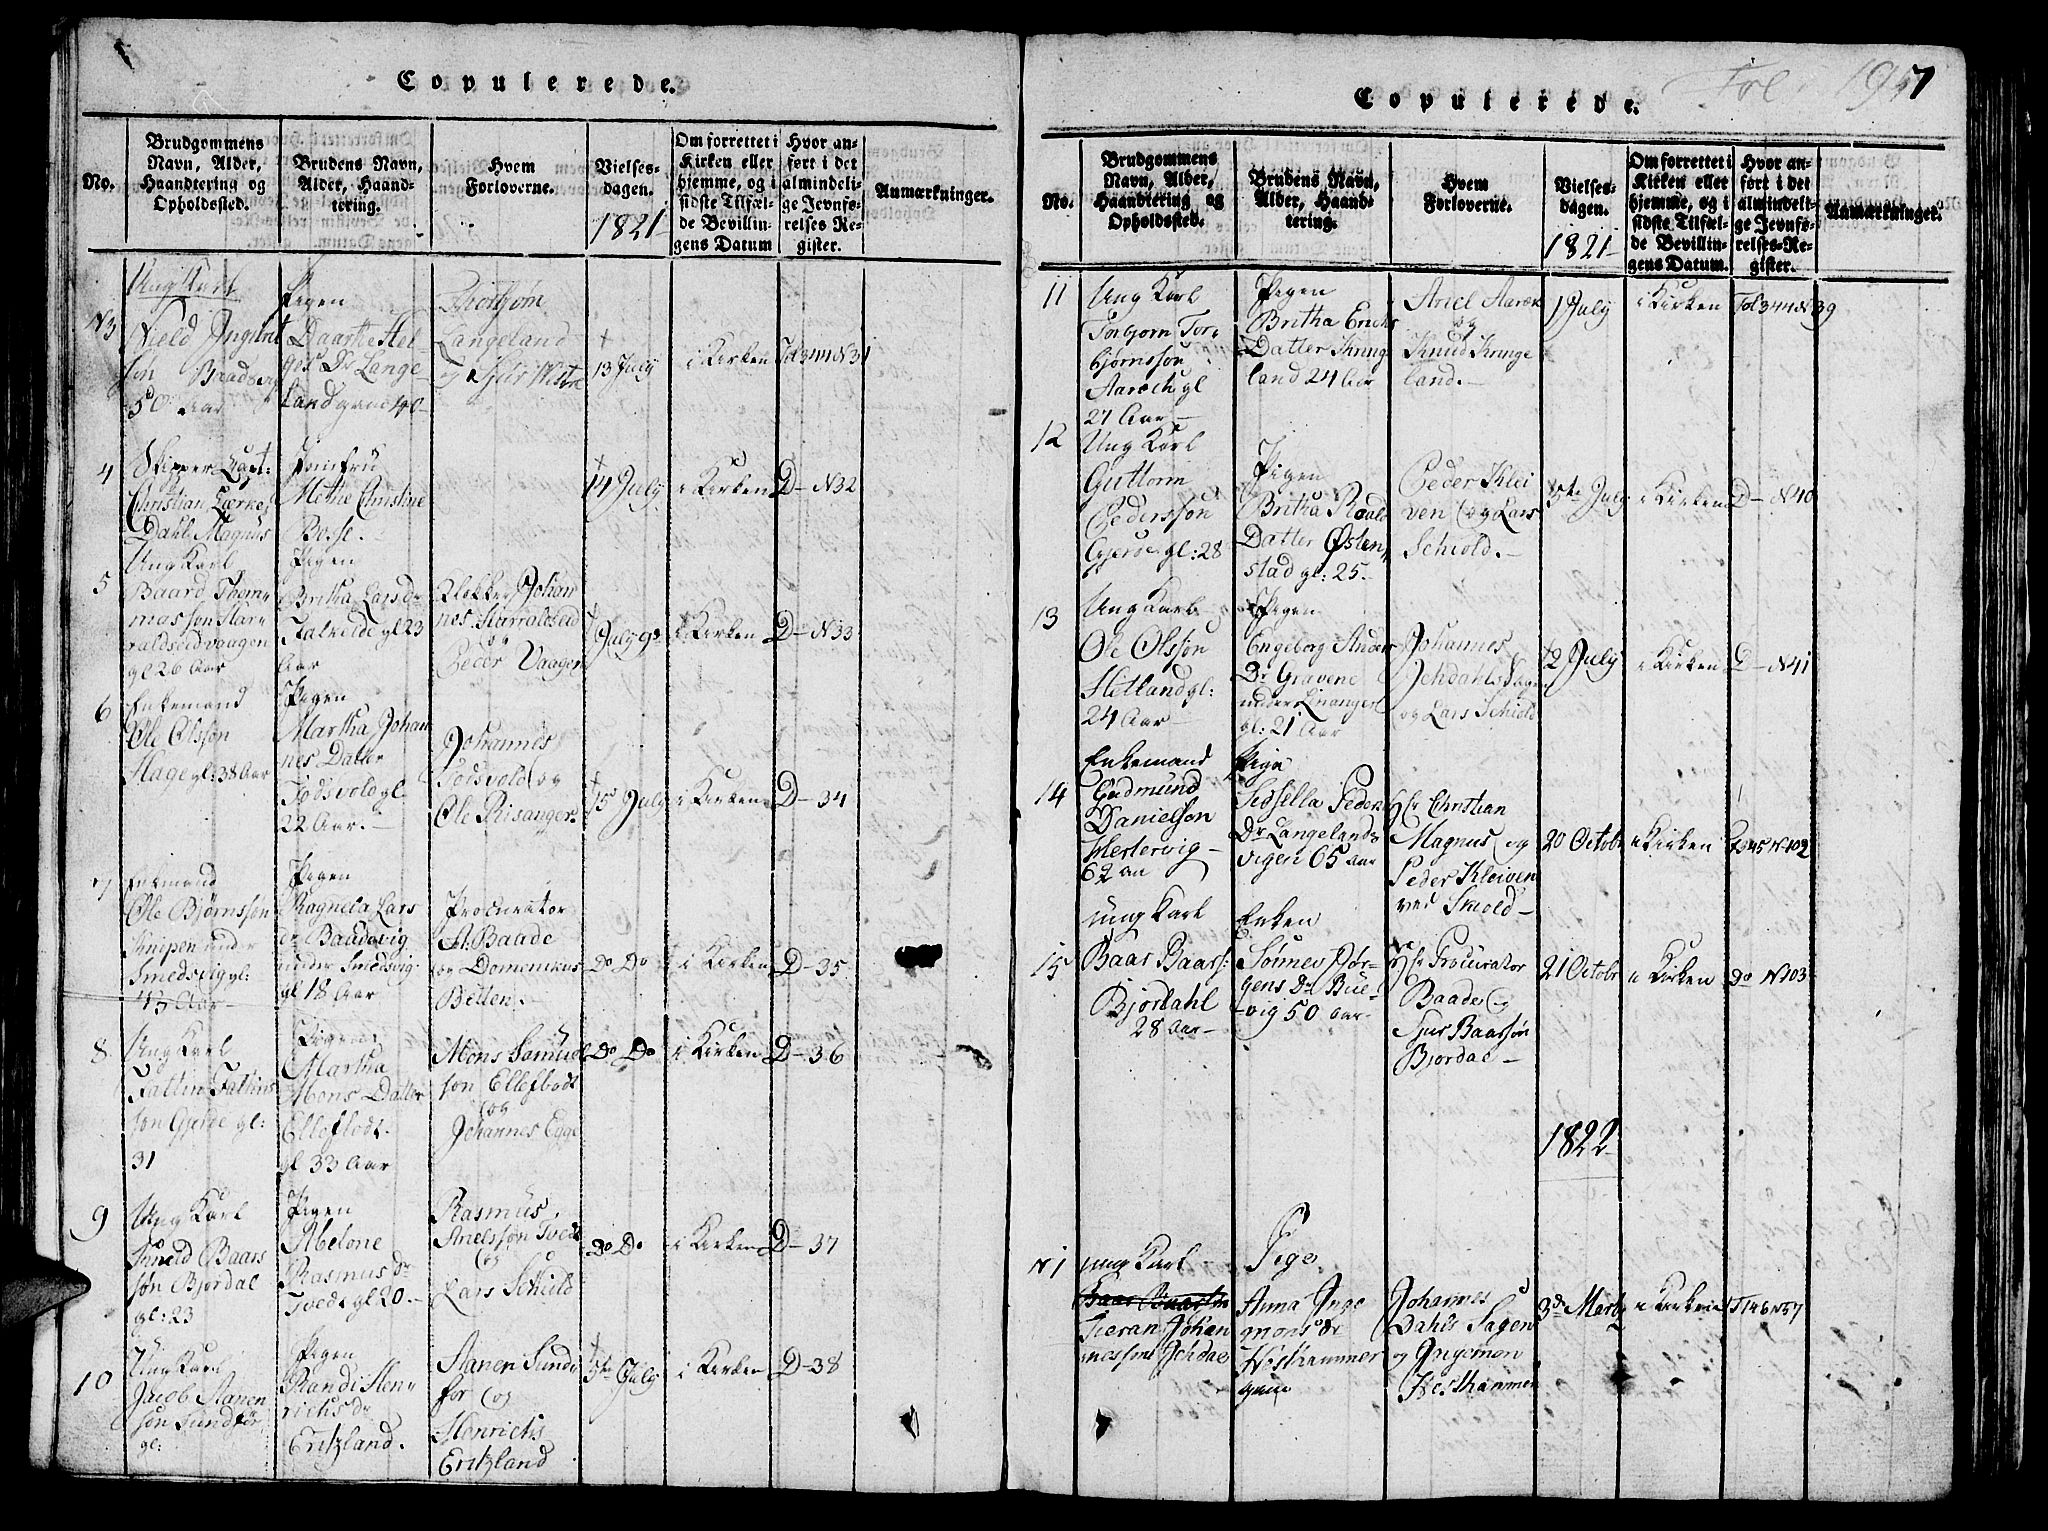 Copulerede.
No.
Brudgommens
Navn, Alder,
Haandtering og
Opholdssted.
Brudens Navn,
Alder, Haand-
tering.
Hvem
Forloverne.
Vielses-
dagen.
1821
Om forrettet i
Kirken eller
hjemme, og i
sidste Tilfæl-
de Bevillin-
gens Datum
Hvor an-
ført i det
almindeli-
ge Jevnfø-
relses-Re-
gister.
Anmærkninger.
N3
Ung Karl
50 Aar
Pigen
Daarthe Hel-
Lange
Land
Torbjørn
Langeland
13 July
i Kirken
Fol 344 N31
4
Skipper
Christian
Dahl Magnus
Jomfru
Methe Christine
Bosse.
14 July
i Kirken
D- N32
5
Ung Karl
Baard Thom-
masson Har-
raldseidvaagen
gl 26 Aar
Pigen
Britha Larsdr
gl 23
Aar
Klokker Johan
nes Harraldseid
og
Peder Vaagen
July
i Kirken
D- N33
6
Enkemand
Ole Olsson
Hage gl: 38 Aar
Pigen
Martha Johan
nes Datter
Todsvold gl
22 Aar.
Johannes
Todsvold og
Ole Risanger
15 July
i Kirken
D- 34
7
Enkemand
Ole Bjørnsson
Knipen under
Smedsvig gl:
43 Aar
Pigen
Ragnela Lars
dr Baudsvig
under Smedsvig
gl 18 Aar
Procurator
A. Baade
og Domenicus
Betten.
Do Do
i Kirken
D- 35
8
Ung Karl
Fattin Fattins
son Gjerde gl:
31
Pigen
Martha
Mons Datter
Elleflodt
gl 33 Aar
Mons Samuel
son Elleflodt
og
Johannes Egge
Do Do
i Kirken
D- 36
9
Ung Karl
Baars
søn Bjordal
gl: 23
Pigen
Abelone
Rasmus dr
Tveds gl 20.
Rasmus
Anelssøn Tvedt
og
Lars Schiold
Do Do
i Kirken
D- 37
10
Ung Karl
Jacob Aanen
søn Sundfør
gl:
Pigen
Randi Hen-
richs dr
Eritzland.
Aanen Sund
for og
Henrich
Eritzland
July
i Kirken
D- 38
Fol. 197
Copulerede.
No.
Brudgommens
Navn, Alder,
Haandtering og
Opholdssted.
Brudens Navn,
Alder, Haand-
tering.
Hvem
Forloverne.
Vielses-
dagen.
1821
Om forrettet i
Kirken eller
hjemme, og i
sidste Tilfæl-
de Bevillin-
gens Datum.
Hvor an-
ført i det
almindeli-
ge Jevnfø-
relses-Re-
gister.
Anmærkninger.
11
Ung Karl
Torbjorn Tor-
bjørnssøn
Aaroch gl
27 Aar
Pigen
Britha Erichs
Datter Kringe
land 24 Aar
Ariel Aaroe
og
Knud Kringe
land.
1 July
i Kirken
Fol 344 N39
12
Ung Karl
Guttorm
Pederssøn
Gjerde gl: 28
Pigen
Britha Roald
Datter Østen-
stad gl: 25.
Peder Klei
ven og Lars
Schiold.
July
i Kirken
D- N40
13
Ung Karl
Ole Olssøn
Hetland gl:
24 Aar
Pigen
Engeborg Anders
Dr Gravene
under
gl: 21 Aar
Johannes
Jehdahls Sagen
og Lars Schiold
12 July
i Kirken
D- N41
14
Enkemand
Gudmund
Danielson
Hestervig
Pige
Sidsella Peders
Dr Langelands
vigen 65 Aar
Hr Christian
Magnus og
Peder Kleiven
ved Skiold
20 Octobr
i Kirken
F 345 N 102
15
ung Karl
Baar Baars:
Bjordahl
28 Aar
Enken
Sønnev Jør-
gens Dr Bue-
vig 50 Aar
Hr Procurator
Baade og
Sjur Baarsøn
Bjordal
21 Octobr
i Kirken
Do N103
1822
N1
ung Karl
Johan
nessøn Jehdal
Pige
Anna Inge
mons dr
Høsthammer
Johannes
Dahls Sagen
og Ingemon
Hesthammer
3d Marty
i Kirken